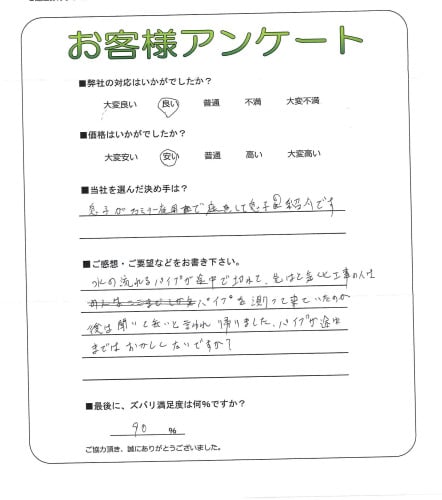 お客様アンケート
■弊社の対応はいかがでしたか？
大変良い 良い 普通 不満 大変不満
■価格はいかがでしたか？
大変安い 安い 普通 高い 大変高い
■当社を選んだ決め手は？
息子が で 息子の紹介です
■ご感想・ご要望などをお書き下さい。
水の流れるパイプが途中で切れて、 工事の人は
パイプを測って来ていたのか
後は聞いて無いと言われ帰りました。パイプが途中
まではおかしくないですか？
■最後に、ズバリ満足度は何%ですか？
90 %
ご協力頂き、誠にありがとうございました。